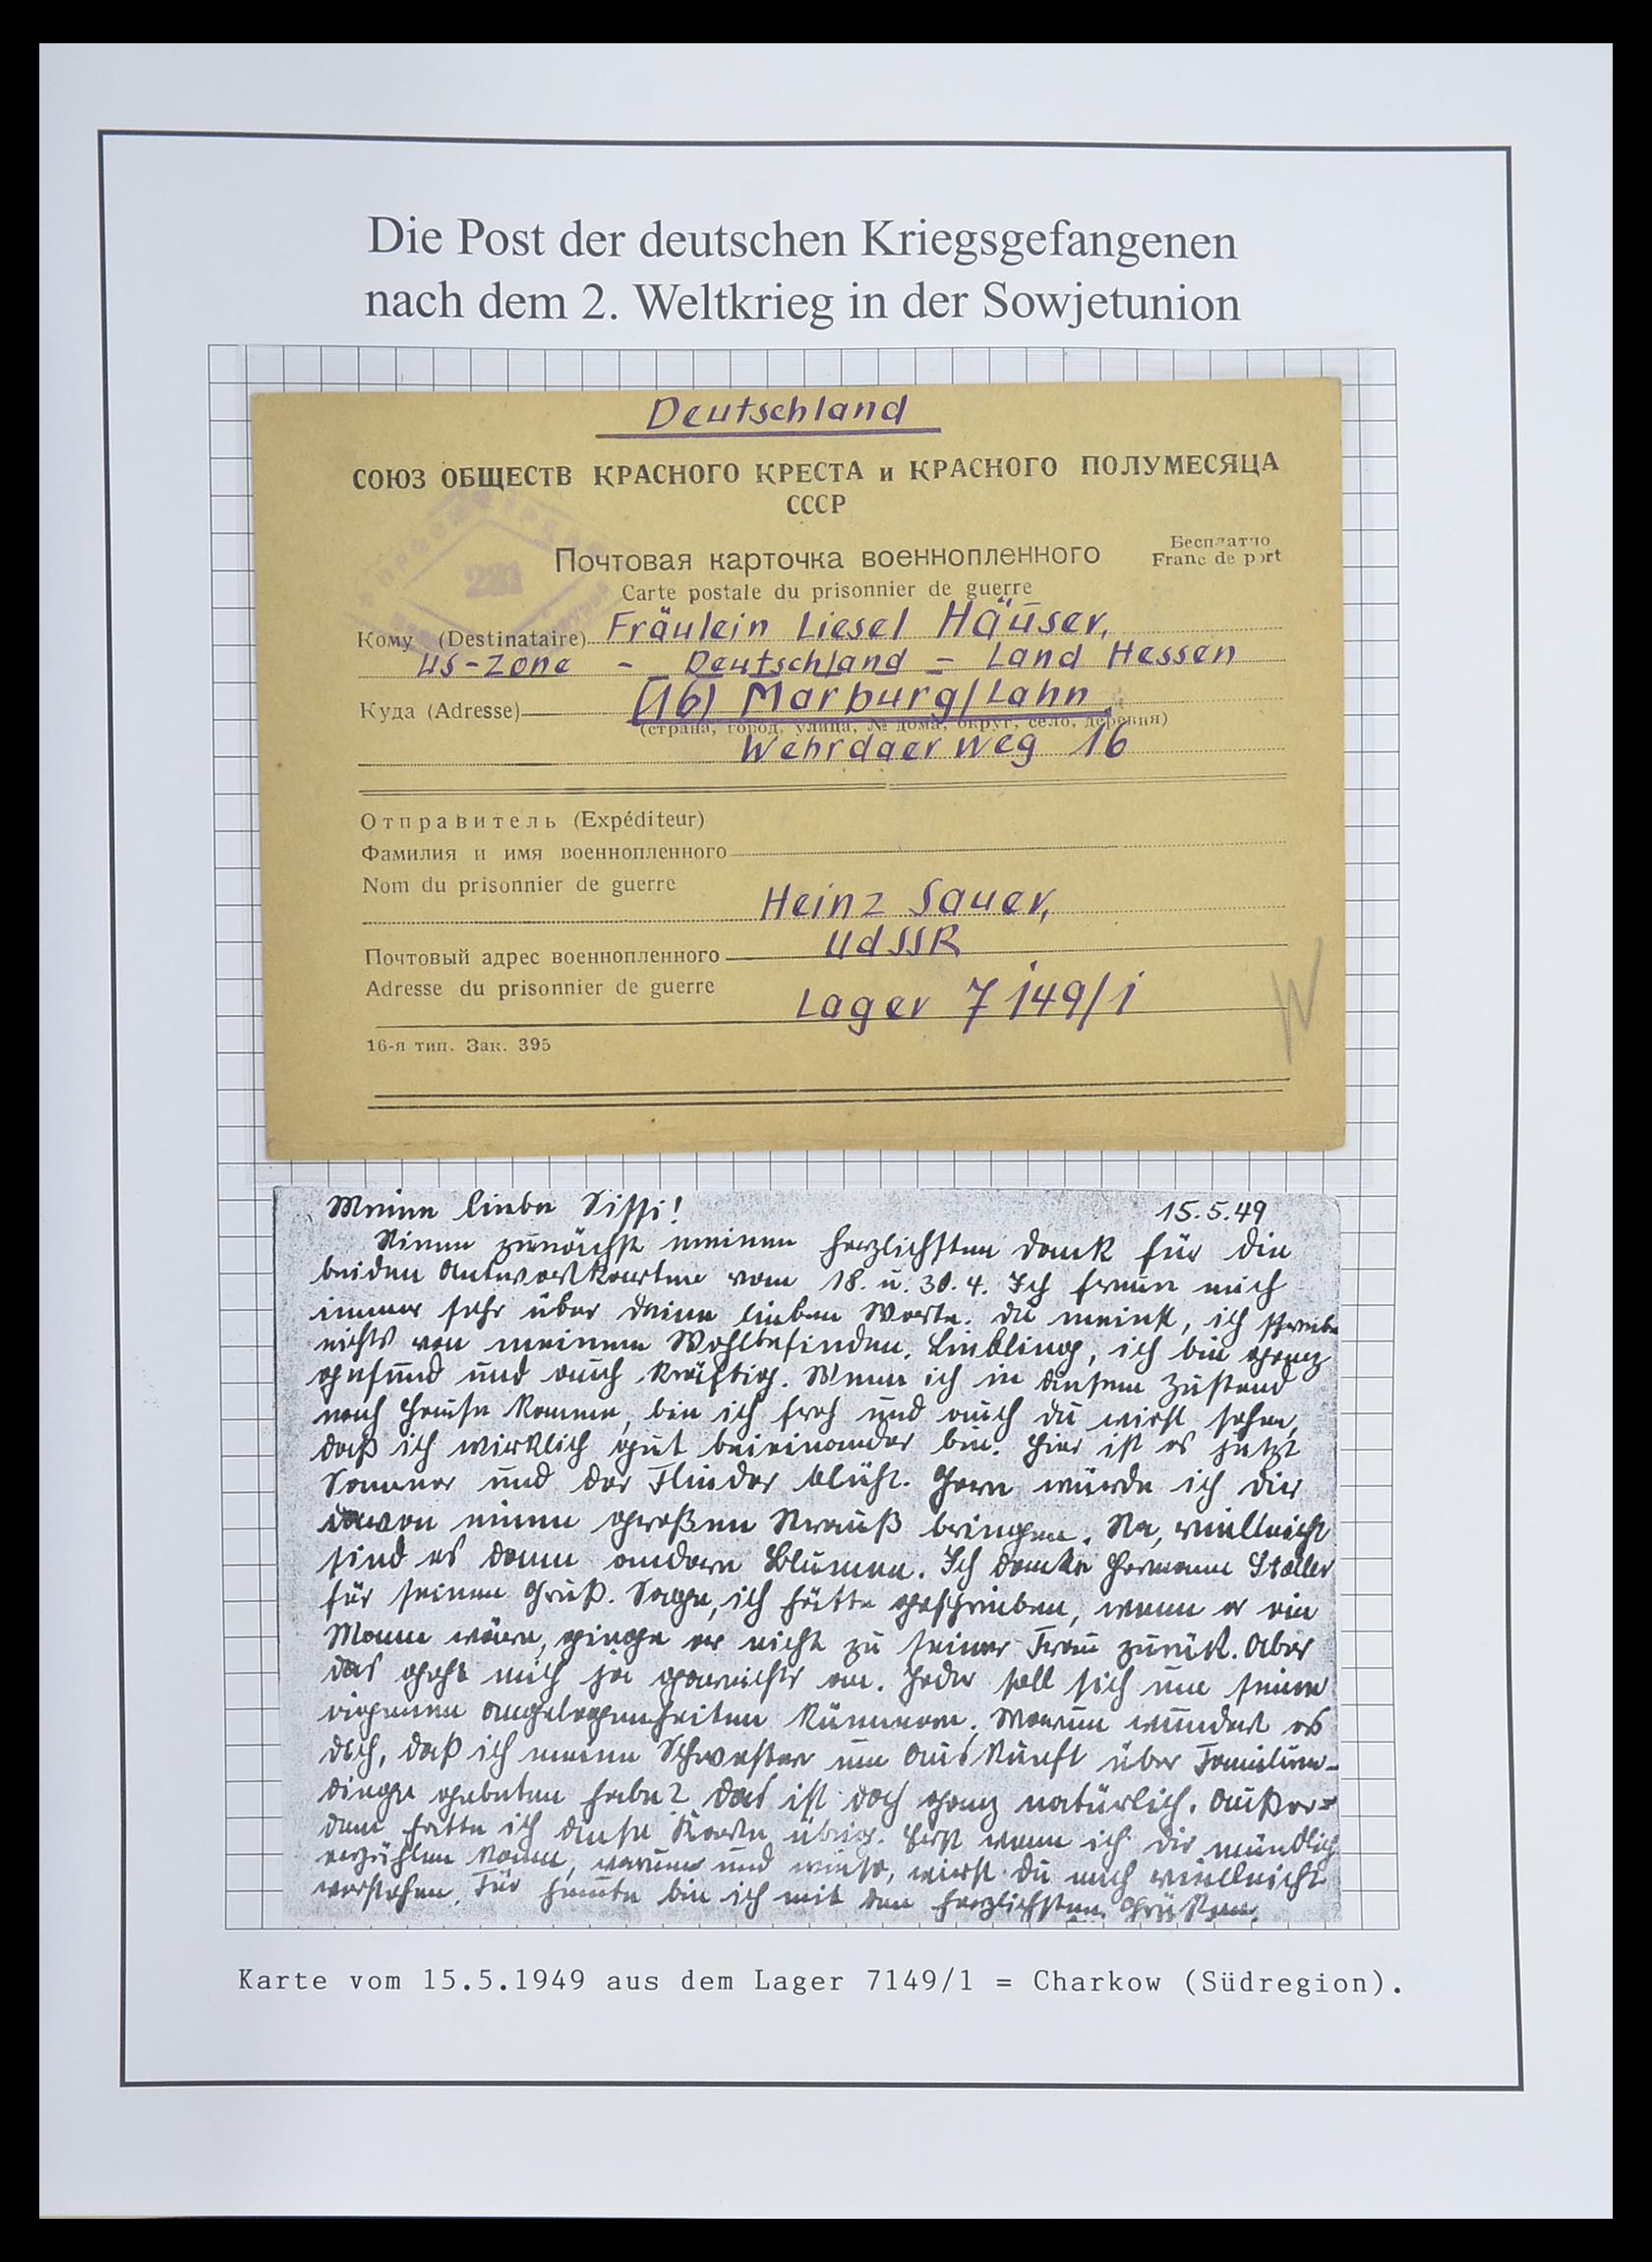 Die Post der deutschen Kriegsgefangenen
nach dem 2. Weltkrieg in der Sowjetunion
Deutschland
СОЮЗ ОБЩЕСТВ КРАСНОГО КРЕСТА и КРАСНОГО ПОЛУМЕСЯЦА
СССР
Почтовая карточка военнопленного
Бесплатно
Carte postale du prisonnier de guerre
Franc de port
281
Кому (Destinataire) Fräulein Liesel Häuser,
US-Zone - Deutschland - Land Hessen
Куда (Adresse) (16) Marburg/Lahn
(страна, город, улица, № дома, округ, село, деревня)
Wehrdaer Weg 16
Отправитель (Expéditeur)
Фамилия и имя военнопленного
Nom du prisonnier de guerre
Heinz Sauer,
Почтовый адрес военнопленного UdSSR
Adresse du prisonnier de guerre
Lager 7149/1
16-я тип. Зак. 395
Meine liebe Sissi! 15.5.49
Nimm zunächst meinen herzlichsten Dank für die
beiden Antwortkarten vom 18. u. 30.4. Ich freue mich
immer sehr über Deine lieben Worte. Du meinst, ich schreibe
nichts von meinem Wohlbefinden. Liebling, ich bin ganz
gesund und auch kräftig. Wenn ich in diesem Zustand
nach Hause komme, bin ich froh und auch Du wirst sehen,
daß ich wirklich gut beieinander bin. Hier ist es jetzt
Sommer und der Flieder blüht. Gern würde ich Dir
davon einen großen Strauß bringen. Na, vielleicht
sind es dann andere Blumen. Ich danke Hermann
für seinen Gruß. Sage, ich hätte geschrieben, wenn er ein
Mann wäre, ginge er nicht zu seiner Frau zurück. Aber
das geht mich ja garnichts an. Jeder soll sich um seine
eigenen Angelegenheiten kümmern. Warum wundert es
Dich, daß ich meine Schwester um Auskunft über Familien-
dinge gebeten habe? Das ist doch ganz natürlich. Außer-
dem hatte ich diese Karte übrig. Erst wenn ich Dir mündlich
erzählen kann, warum und wieso, wirst Du mich vielleicht
verstehen. Für heute bin ich mit den herzlichsten Grüßen
Karte vom 15.5.1949 aus dem Lager 7149/1 = Charkow (Südregion).